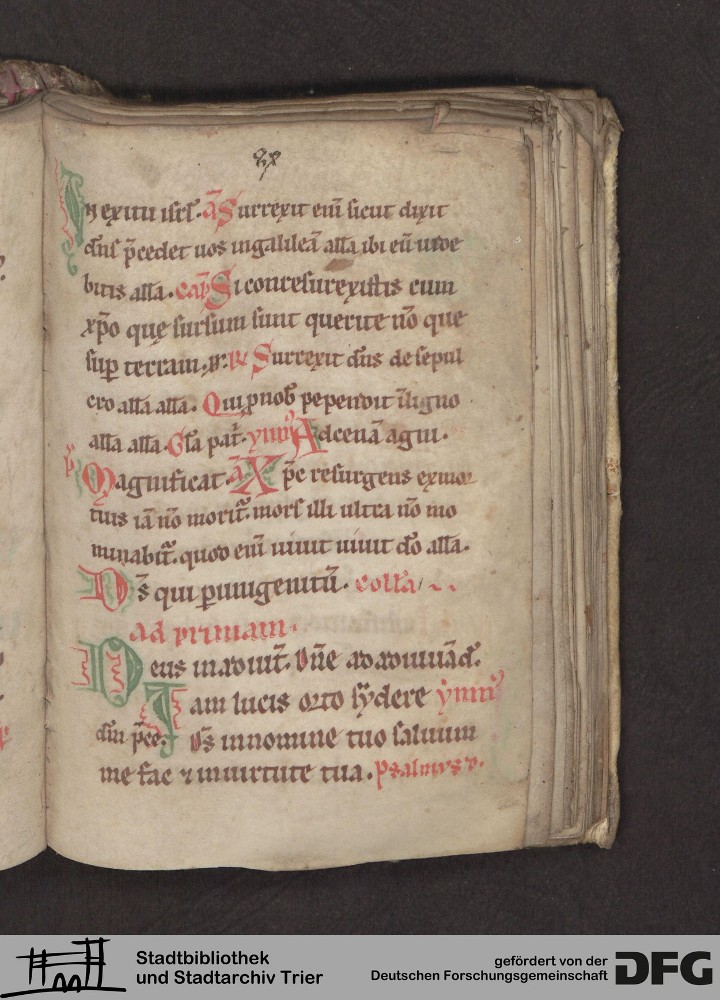 In exitu isrł. ā Surrexit eni̅ sicut dixit
dn̅s p̅cedet uos ingalileā all̅a ibi eū uide
bitis all̅a. cap̅ Si conresurexistis cum
xp̅o que sursum sunt querite nō que
sup̱ terram. R̅ Surrexit dn̅s desepul
cro all̅a all̅a. Qui pnob̅ pependit ī ligno
all̅a all̅a. Gl̅a pat̅. ym̅n᷒ Adcenā agni.
Magnificat. ā Xp̅c resurgens exmor
tuis iā nō morit̅. mors illi ultra nō mo
minabit̅. quod eni̅ uiuit uiuit do̅ all̅a.
Ds̅ qui p̱unigenitū. coll̅a
ad primam.
Deus inadiut̅. Dn̅e adadiuuād̅.
Iam lucis orto sẏdere ẏmn᷒
dm̅ p̅ce. Ds̅ innomine tuo saluum
me fac ⁊ inuirtute tua. psalmus.
Stadtbibliothek
und Stadtarchiv Trier
gefördert von der
Deutschen Forschungsgemeinschaft
DFG